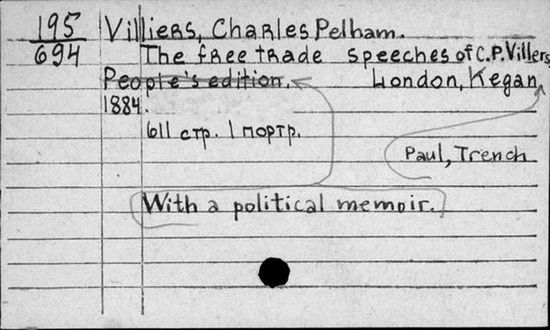 195 Villiers, Charles Pelham.
694 The free trade speeches of C.P. Villers,
People's edition. London, Kegan,
1884.
611 стр. 1 портр.
Paul, Trench
With a political memoir.